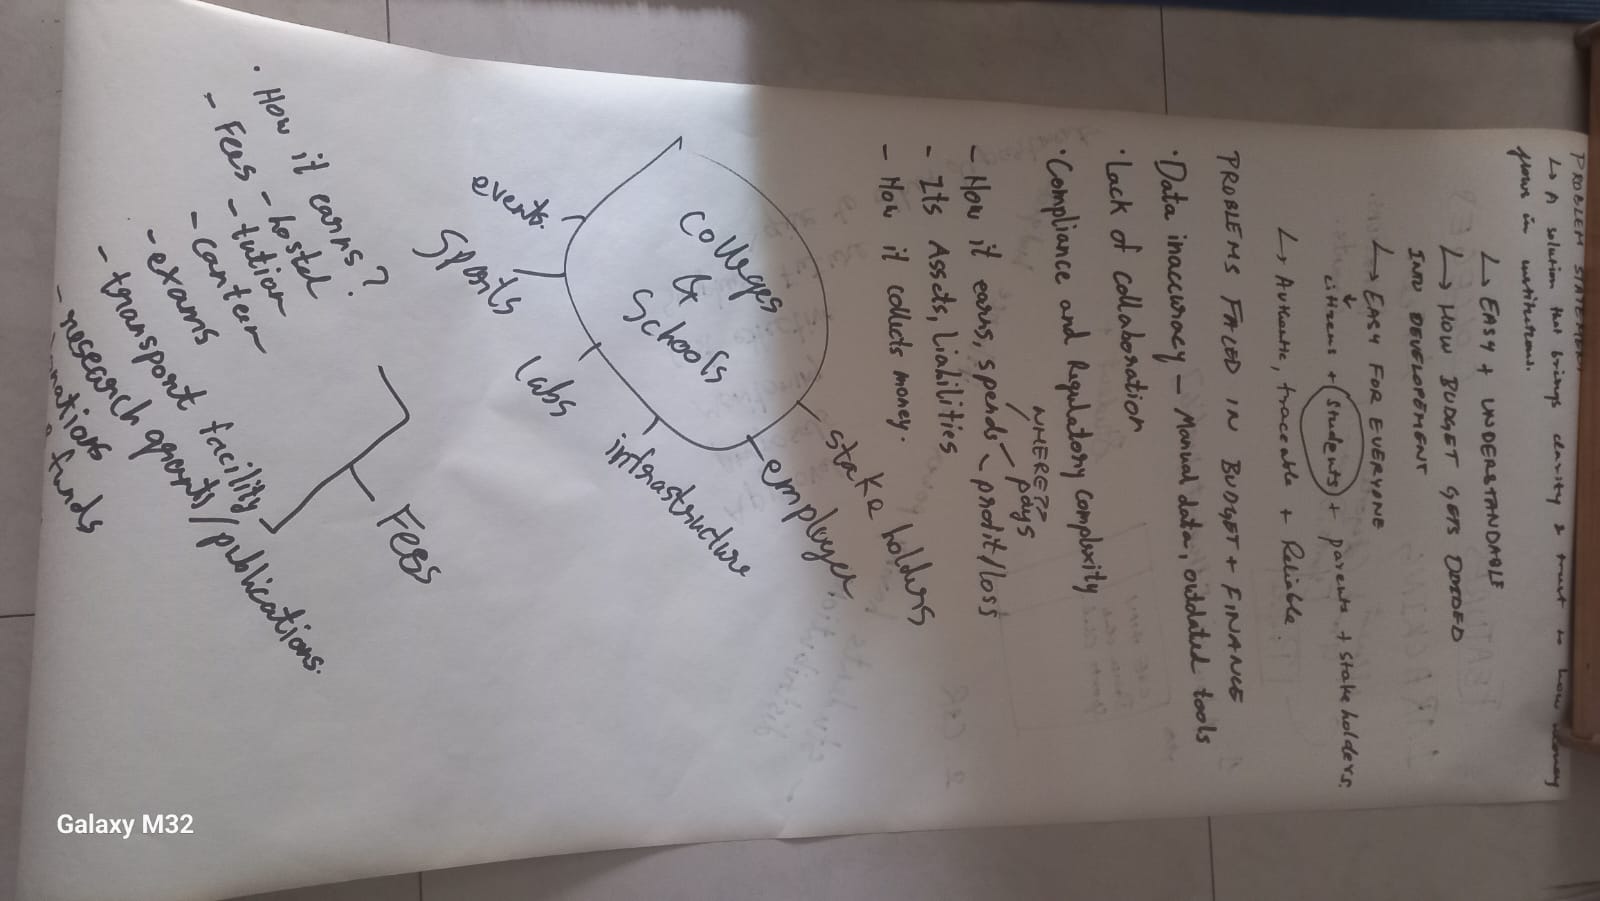 PROBLEM STATEMENT
↳ A solution that brings clarity & trust to how money
flows in institutions.
↳ EASY + UNDERSTANDABLE
↳ HOW BUDGET GETS DIVIDED
INTO DEVELOPMENT
↳ EASY FOR EVERYONE
↓
citizens + students + parents + stakeholders.
↳ Authentic, traceable + Reliable.
PROBLEMS FACED IN BUDGET + FINANCE
· Data inaccuracy – Manual data, outdated tools
· Lack of collaboration
· Compliance and Regulatory complexity
WHERE??
pays
- How it earns, spends, profit/loss
- Its Assets, Liabilities
- How it collects money.
Colleges
&
Schools
stake holders
employer
infrastructure
labs
sports
events.
· How it earns?
- Fees - hostel
- tution
- canteen
- exams
- transport facility
- research grants/publications.
funds
Fees
Galaxy M32